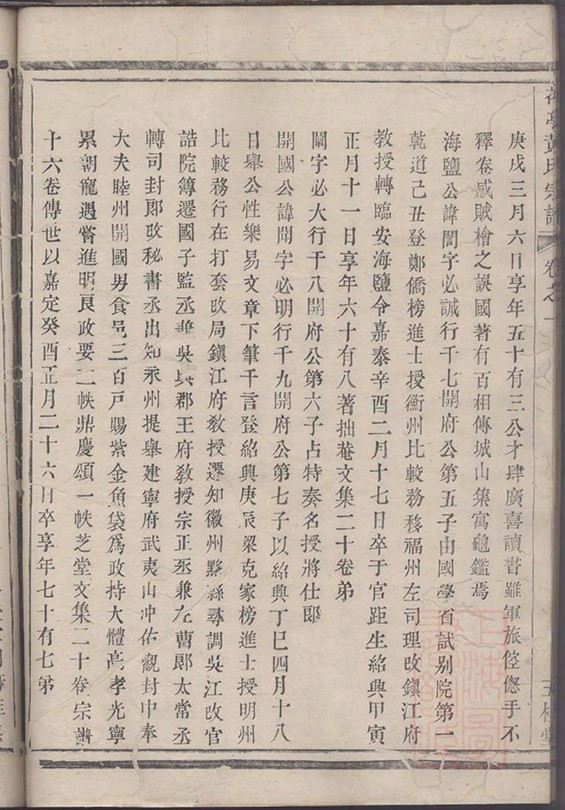 黃氏宗譜
卷之一
庚戌三月六日享年五十有三公才肆廣喜讀書雖軍旅倥傯手不
釋卷感賊檜之誤國著有百相傳城山集寓龜鑑焉
海鹽公諱閶字必誠行千七開府公第五子由國學省試别院第一
乾道己丑登鄭僑榜進士授衡州比較務移福州左司理改鎭江府
教授轉臨安海鹽令嘉泰辛酉二月十七日卒于官距生紹興甲寅
正月十一日享年六十有八著拙菴文集二十卷弟
闡字必大行千八開府公第六子占特奏名授將仕郎
開國公諱開字必明行千九開府公第七子以紹興丁巳四月十八
日舉公性樂易文章下筆千言登紹興庚辰梁克家榜進士授明州
比較務行在打套改局鎭江府教授遷知徽州黟縣尋調吳江改官
誥院簿遷國子監丞兼吳興郡王府教授宗正丞兼左曹郎太常丞
轉司封郎改秘書丞出知永州提舉建寧府武夷山冲佑觀封中奉
大夫睦州開國男食邑三百戸賜紫金魚袋爲政持大體高孝光寧
累朝寵遇嘗進明良政要二帙鼎慶頌一帙芝堂文集二十卷宗譜
十六卷傳世以嘉定癸酉正月二十六日卒享年七十有七弟